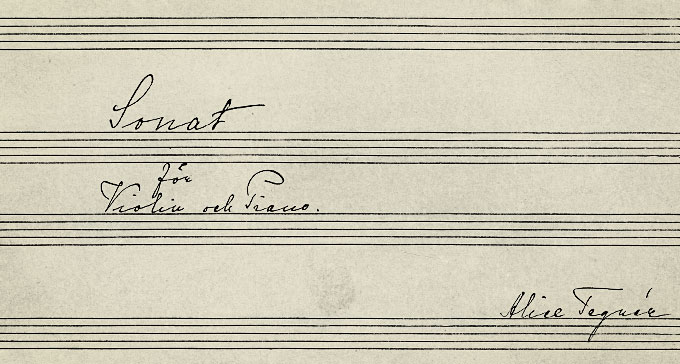 Sonat
för
Violin och Piano.
Alice Tegnér